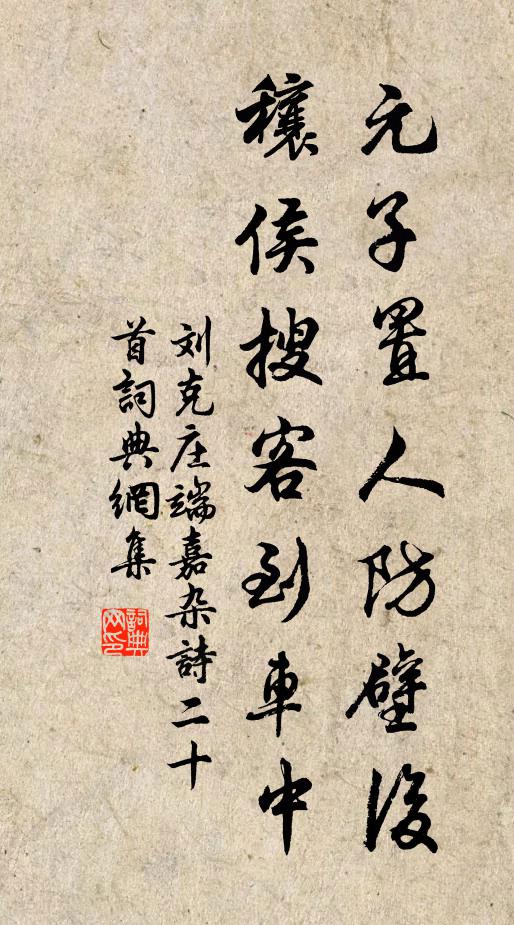 元子置人防壁後
穰侯搜客到車中
刘克庄端嘉杂詩二十
首詞典網集
詞典
网印